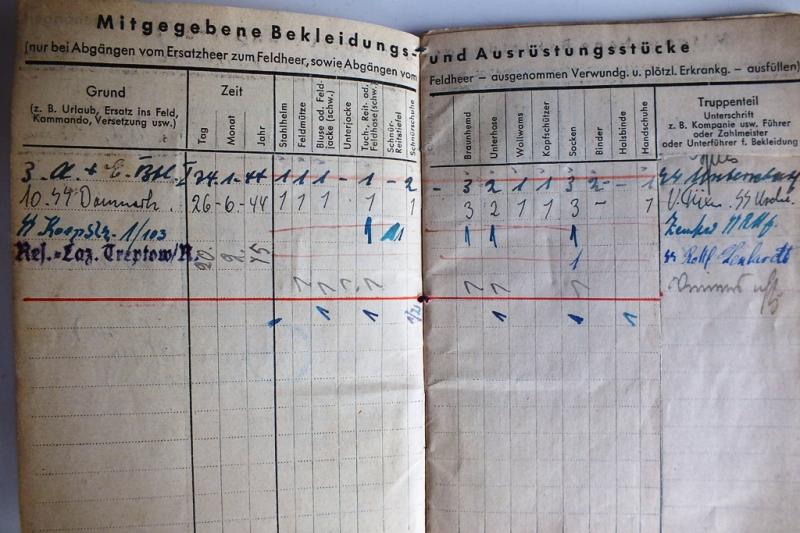 Mitgegebene Bekleidungs- und Ausrüstungsstücke
(nur bei Abgängen vom Ersatzheer zum Feldheer, sowie Abgängen vom Feldheer – ausgenommen Verwundg. u. plötzl. Erkrankg. – ausfüllen)
Grund
(z. B. Urlaub, Ersatz ins Feld,
Kommando, Versetzung usw.)
Zeit
Tag
Monat
Jahr
Stahlhelm
Feldmütze
Bluse od. Feld-
jacke (schw.)
Unterjacke
Tuch-, Reit- od.
Feldhose (schw.)
Schnür-
Reitstiefel
Schnürschuhe
Braunhemd
Unterhose
Wollwams
Kopfschützer
Socken
Binder
Halsbinde
Handschuhe
Truppenteil
Unterschrift
z. B. Kompanie usw. Führer
oder Zahlmeister
oder Unterführer f. Bekleidung
3. A. + E. Btl. I 24. 1. 44 1 1 1 – 1 – 2 – 3 2 1 1 3 2 – – 1
10. SS Danmark. 26 - 6 - 44 1 1 1 1 1 3 2 1 1 3 – 1
1/103 1 1 1 1 1
Res.-Laz. Treptow/R. 20. 2. 45 1
1 1 1 1 1 1
1 1 1 1 1 1